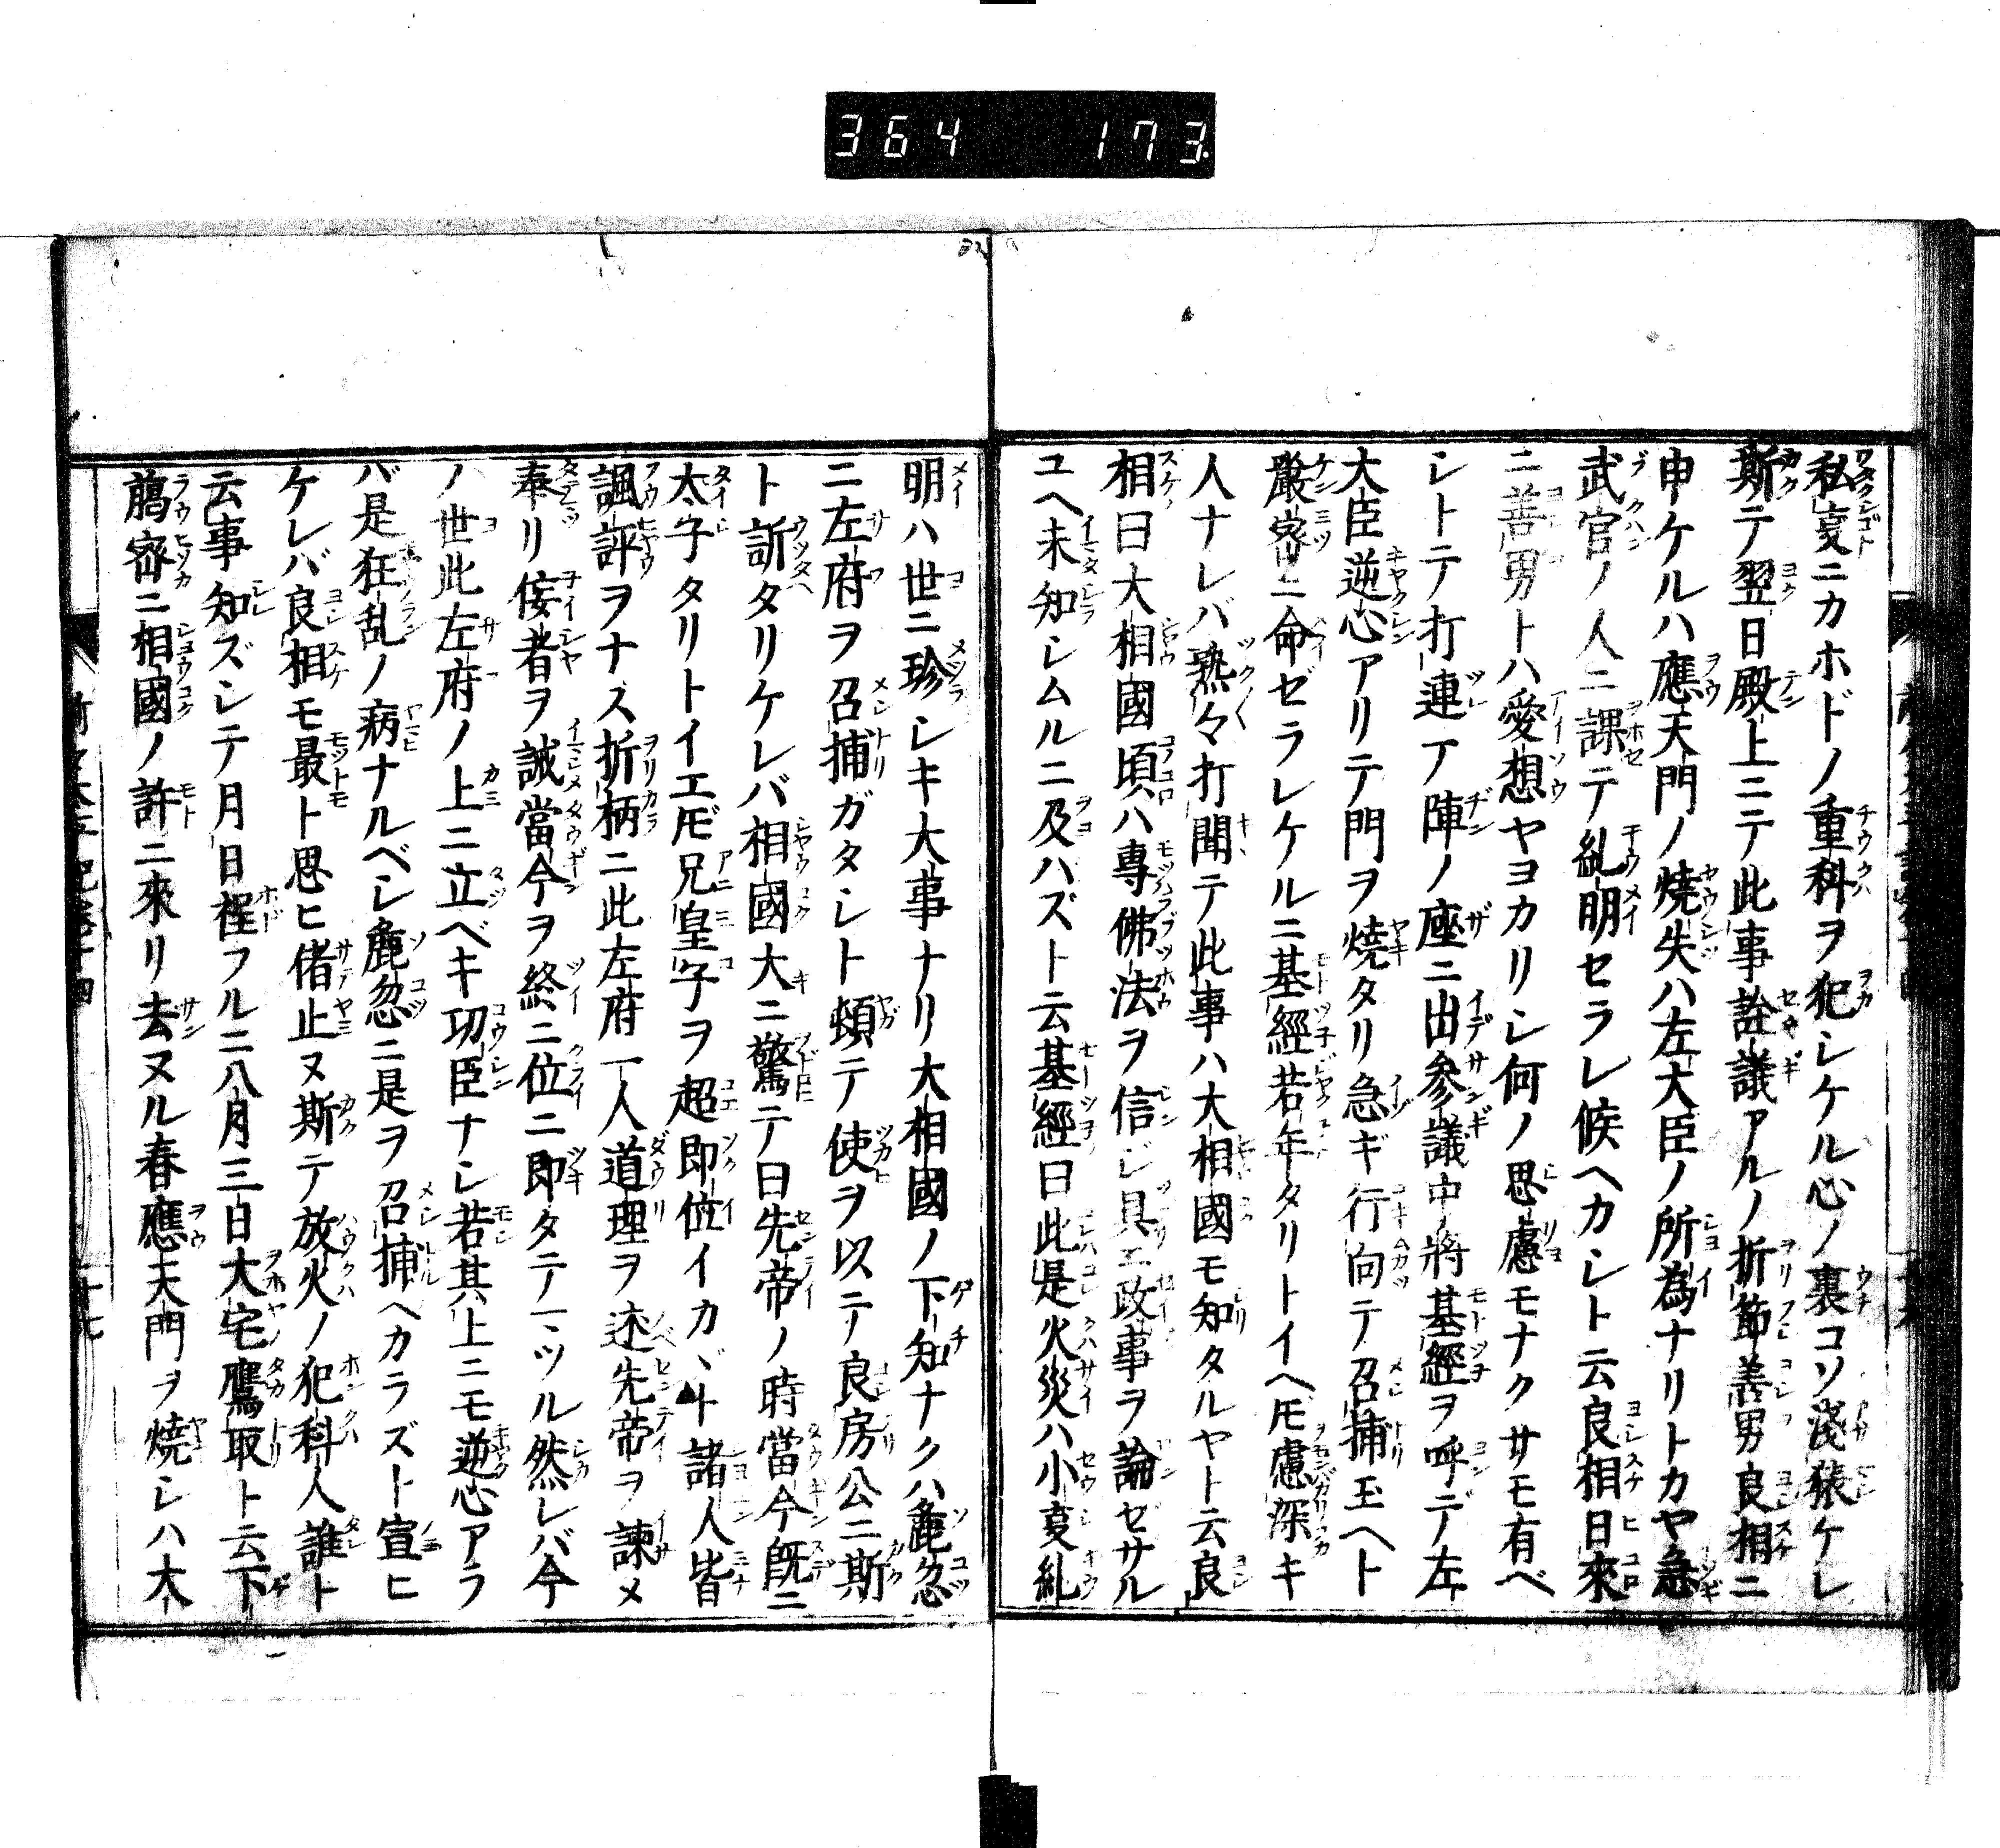 364 173
私叓ニカホドノ重科ヲ犯シケル心ノ裏コソ淺猿ケレ
斯テ翌日殿上ニテ此事詮議アルノ折節善男良相ニ
申ケルハ應天門ノ燒失ハ左大臣ノ所為ナリトカヤ急
武官ノ人ニ課テ糺明セラレ候ヘカシト云良相日來
ニ善男トハ愛想ヤヨカリシ何ノ思慮モナクサモ有ベ
シトテ打連ア陣ノ座ニ出参議中將基經ヲ呼デ左
大臣逆心アリテ門ヲ燒タリ急ギ行向テ召捕玉ヘト
嚴密ニ命ゼラレケルニ基經若年タリトイヘ𪜈慮深キ
人ナレバ熟々打聞テ此事ハ大相國モ知タルヤト云良
相曰大相國頃ハ專佛法ヲ信シ具ニ政事ヲ論ゼサル
ユヘ未知シムルニ及ハズト云基經曰此是火災ハ小叓糺
明ハ世ニ珍シキ大事ナリ大相國ノ下知ナクハ麁忽
ニ左府ヲ召捕ガタシト頓テ使ヲ以テ良房公ニ斯
ト訴タリケレバ相國大ニ驚テ曰先帝ノ時當今既ニ
太子タリトイエ𪜈兄皇子ヲ超即位イカヾト諸人皆
諷評ヲナス折柄ニ此左府一人道理ヲ述先帝ヲ諫メ
奉リ佞者ヲ誡當今ヲ終ニ位ニ即タテマツル然レバ今
ノ世此左府ノ上ニ立ベキ功臣ナシ若其上ニモ逆心アラ
バ是狂乱ノ病ナルベシ麁忽ニ是ヲ召捕ヘカラズト宣ヒ
ケレバ良相モ最ト思ヒ偖止ヌ斯テ放火ノ犯科人誰ト
云事知ズシテ月日程フルニ八月三日大宅鷹取ト云下
﨟密ニ相國ノ許ニ來リ去ヌル春應天門ヲ燒シハ大